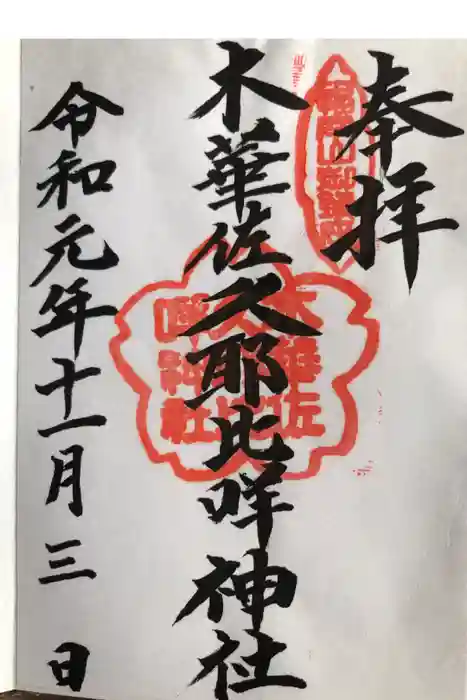 奉拝
木華佐久耶比咩神社
令和元年十一月三日